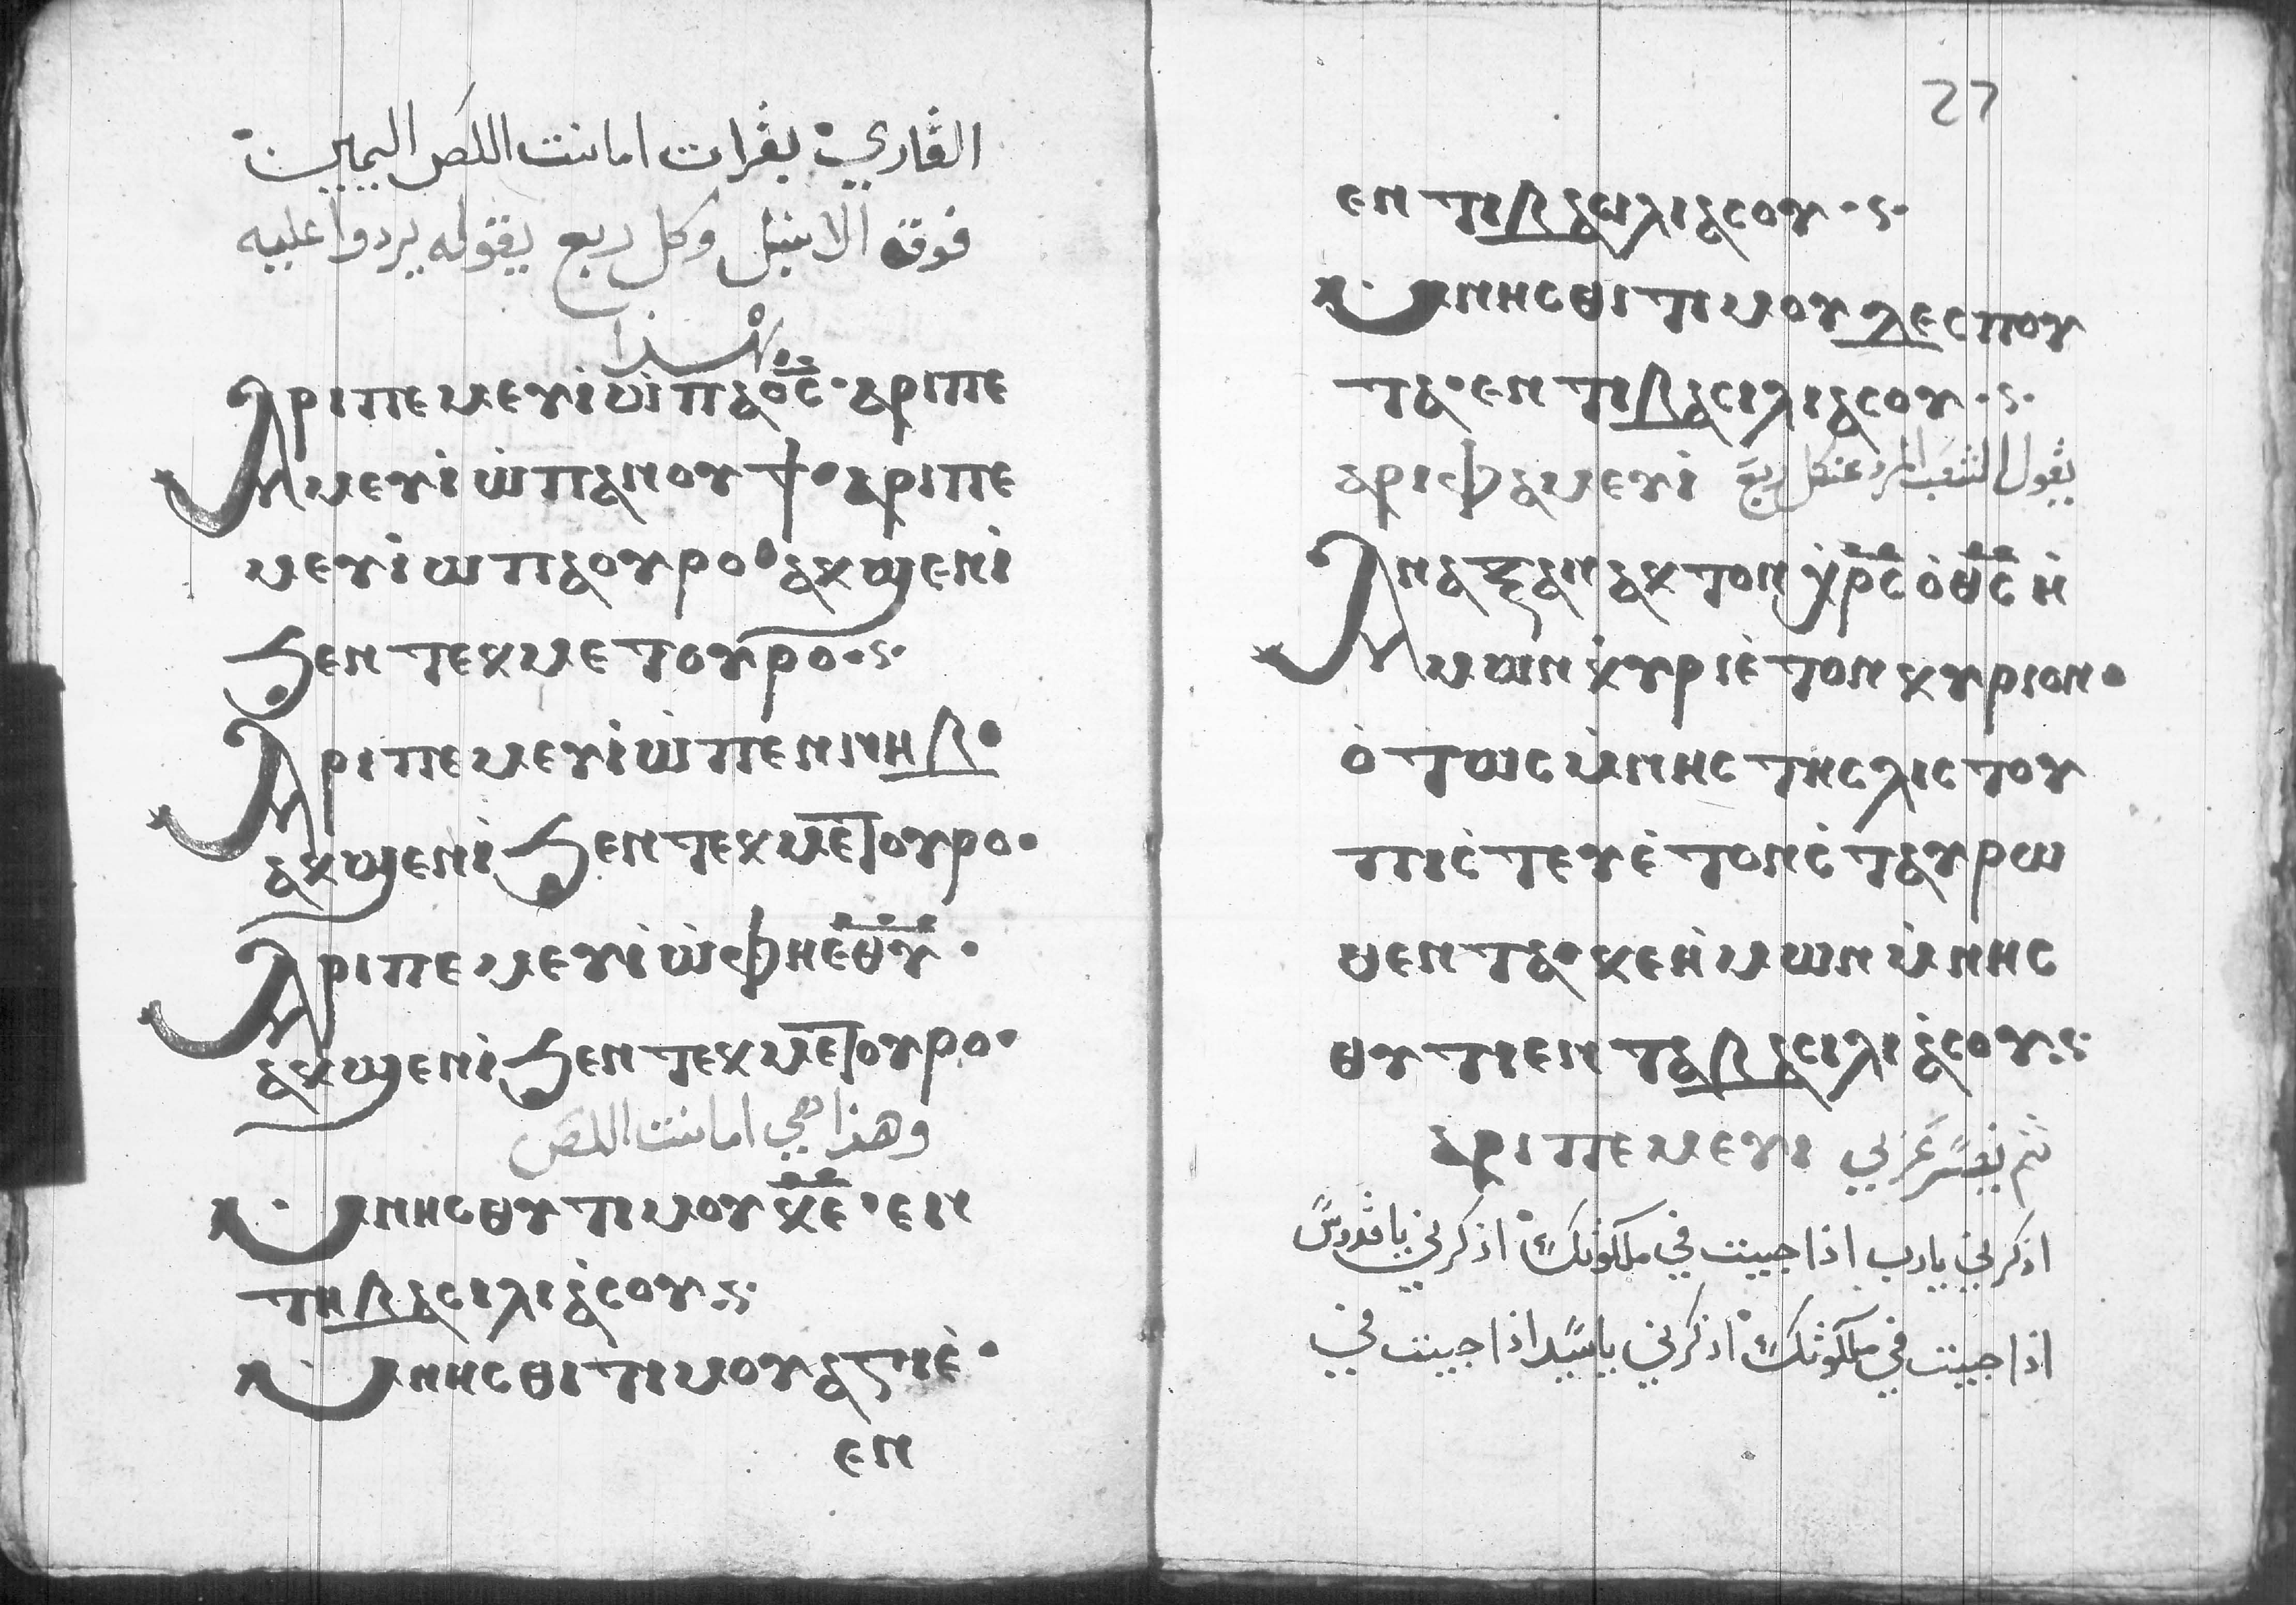 القاري بقرات امانت اللص اليمين
فوق الانبل وكل ربع يقوله يردوا عليه
هذا
ⲁⲣⲓⲡⲉⲙⲉⲩⲓ̀ⲱ̀ⲡⲁⲟ̅ⲥ̅·ⲁⲣⲓⲡⲉ
ⲙⲉⲩⲓ̀ⲱ̀ⲡⲁⲛⲟⲩϯ·ⲁⲣⲓⲡⲉ
ⲙⲉⲩⲓ̀ⲱⲡⲁⲟⲩⲣⲟ·ⲁⲕϣⲉⲛⲓ̀
ϧⲉⲛⲧⲉⲕⲙⲉⲧⲟⲩⲣⲟ·ⲥ·
ⲁⲣⲓⲡⲉⲙⲉⲩⲓ̀ⲱ̀ⲡⲉⲛⲛⲏⲃ·
ⲁⲕϣⲉⲛⲓ̀ϧⲉⲛⲧⲉⲕⲙⲉⲧⲟⲩⲣⲟ·
ⲁⲣⲓⲡⲉⲙⲉⲩⲓ̀ⲱ̀ⲫⲏⲉ̅ⲑ̅ⲩ̅·
ⲁⲕϣⲉⲛⲓ̀ϧⲉⲛⲧⲉⲕⲙⲉⲧⲟⲩⲣⲟ·
وهذا هي امانت اللص
ⲙⲛⲏⲥⲑⲩⲧⲓⲙⲟⲩⲕ̅ⲉ̅·ⲉⲓⲛ
ⲧⲏⲃⲁⲥⲓⲗⲓⲁ̀ⲥⲟⲩ·ⲥ·
ⲙⲛⲏⲥⲑⲓⲧⲓⲙⲟⲩⲁⲅⲓⲉ̀·
ⲉⲛ
27
ⲉⲛⲧⲓⲃⲁⲱⲓⲗⲓⲁⲥⲟⲩ·ⲥ·
ⲙⲛⲏⲥⲑⲓⲧⲓⲙⲟⲩⲇⲉⲥⲡⲟⲩ
ⲧⲁ·ⲉⲛⲧⲓⲃⲁⲥⲓⲗⲓⲁⲥⲟⲩ·ⲥ·
ⲁⲣⲓⲫⲁⲙⲉⲩⲓ̀ يقول الشعب المرد عند كل ربع
ⲁⲛⲁⲝⲁⲛⲁⲕⲧⲟⲛⲭ̀ⲣ̅ⲥ̅ⲟ̀ⲑ̅ⲥ̅ⲏ̀
ⲙⲱⲛⲕ̀ⲩⲣⲓⲉ̀ⲧⲟⲛⲕⲩⲣⲓⲟⲛ·
ⲟ̀ⲧⲱⲥⲙ̀ⲛⲏⲥⲧⲏⲥⲗⲓⲥⲧⲟⲩ
ⲡⲓⲥ̀ⲧⲉⲩⲉ̀ⲧⲟⲛⲥ̀ⲧⲁⲩⲣⲱ
ⲑⲉⲛⲧⲁ·ⲕⲉⲏ̀ⲙⲱⲛⲙ̀ⲛⲏⲥ
ⲑⲩⲧⲓⲉⲛⲧⲁⲃⲁⲥⲓⲗⲓⲁ̀ⲥⲟⲩ·ⲥ·
ⲁⲣⲓⲡⲉⲙⲉⲩⲓ ثم يفسر عربي
اذكرني يارب اذا جيت في ملكوتك اذكرني يا قدوس
اذا جيت في ملكوتك اذكرني يا سيد اذا جيت في